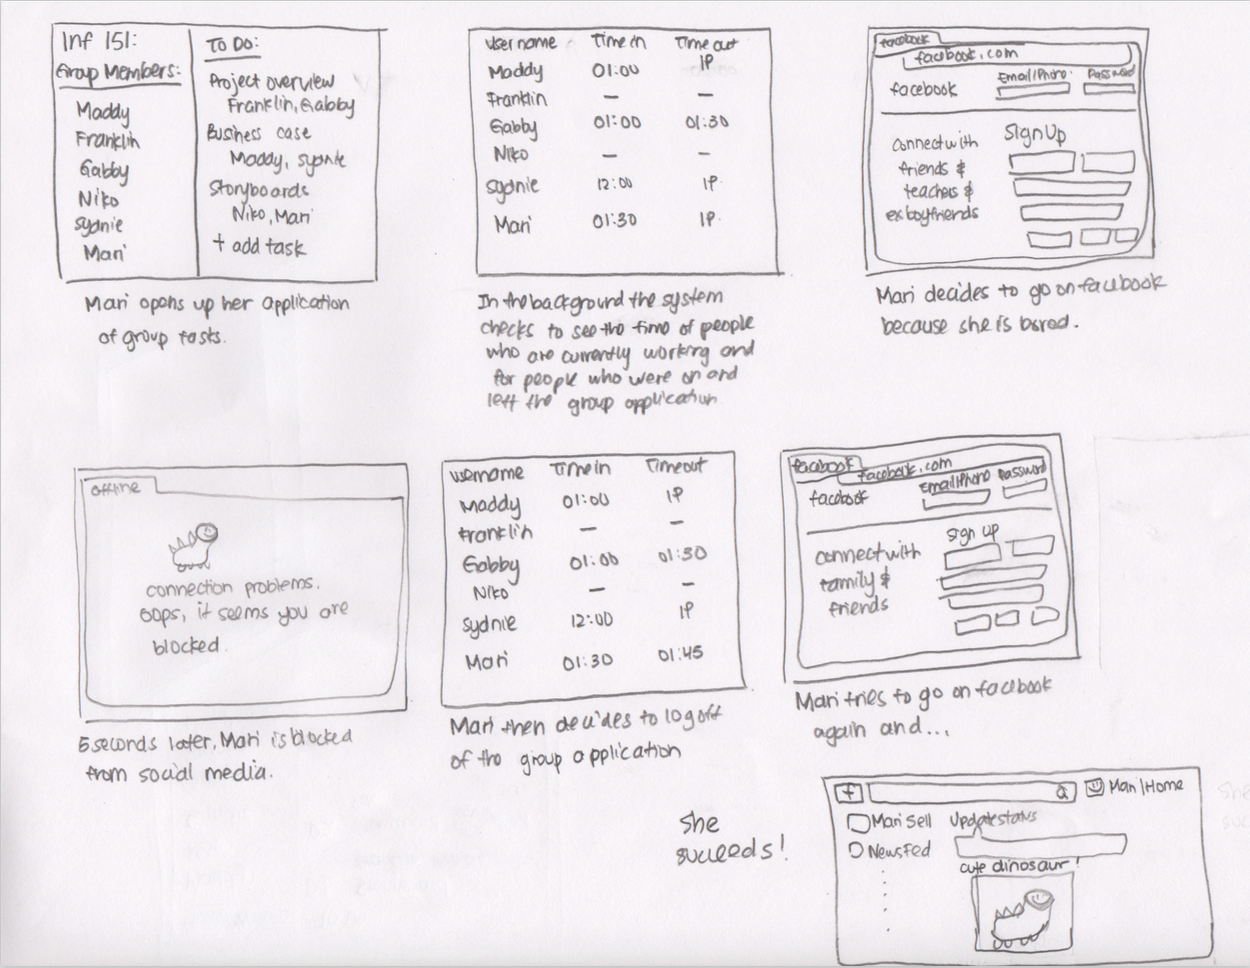 Inf 151:
Group Members:
Maddy
Franklin
Gabby
Niko
Sydnie
Mari
To Do:
Project overview
Franklin, Gabby
Business case
Maddy, Sydnie
Storyboards
Niko, Mari
+ add task
Mari opens up her application
of group tasks.
username Time in Time out
Maddy 01:00 IP
Franklin — —
Gabby 01:00 01:30
Niko — —
Sydnie 12:00 IP
Mari 01:30 IP
In the background the system
checks to see the time of people
who are currently working and
for people who were on and
left the group application
facebook
facebook.com
facebook Email/Phone Password
connect with
friends &
teachers &
exboyfriends
Sign Up
Mari decides to go on facebook
because she is bored.
offline
connection problems.
oops, it seems you are
blocked.
5 seconds later, Mari is blocked
from social media.
username Time in Timeout
Maddy 01:00 IP
Franklin — —
Gabby 01:00 01:30
Niko — —
Sydnie 12:00 IP
Mari 01:30 01:45
Mari then decides to log off
of the group application
facebook
facebook.com
facebook Email/Phone Password
connect with
family &
friends
Sign up
Mari tries to go on facebook
again and...
She
succeeds!
f Mari|Home
Mari Sell
Newsfed
Update status
cute dinosaur!